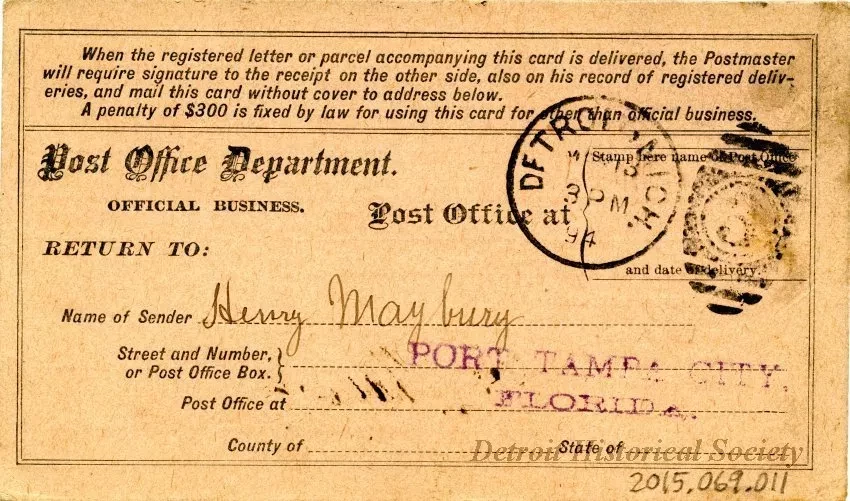 When the registered letter or parcel accompanying this card is delivered, the Postmaster
will require signature to the receipt on the other side, also on his record of registered deliv-
eries, and mail this card without cover to address below.
A penalty of $300 is fixed by law for using this card for other than official business.
Post Office Department.
OFFICIAL BUSINESS.
RETURN TO:
Post Office at
DETROIT, MICH.
3 PM
94
Stamp here name of Post Office
and date of delivery.
3
Name of Sender Henry Maybury
Street and Number,
or Post Office Box.
PORT TAMPA CITY,
Post Office at
FLORIDA.
County of
State of
Detroit Historical Society
2015.069.011